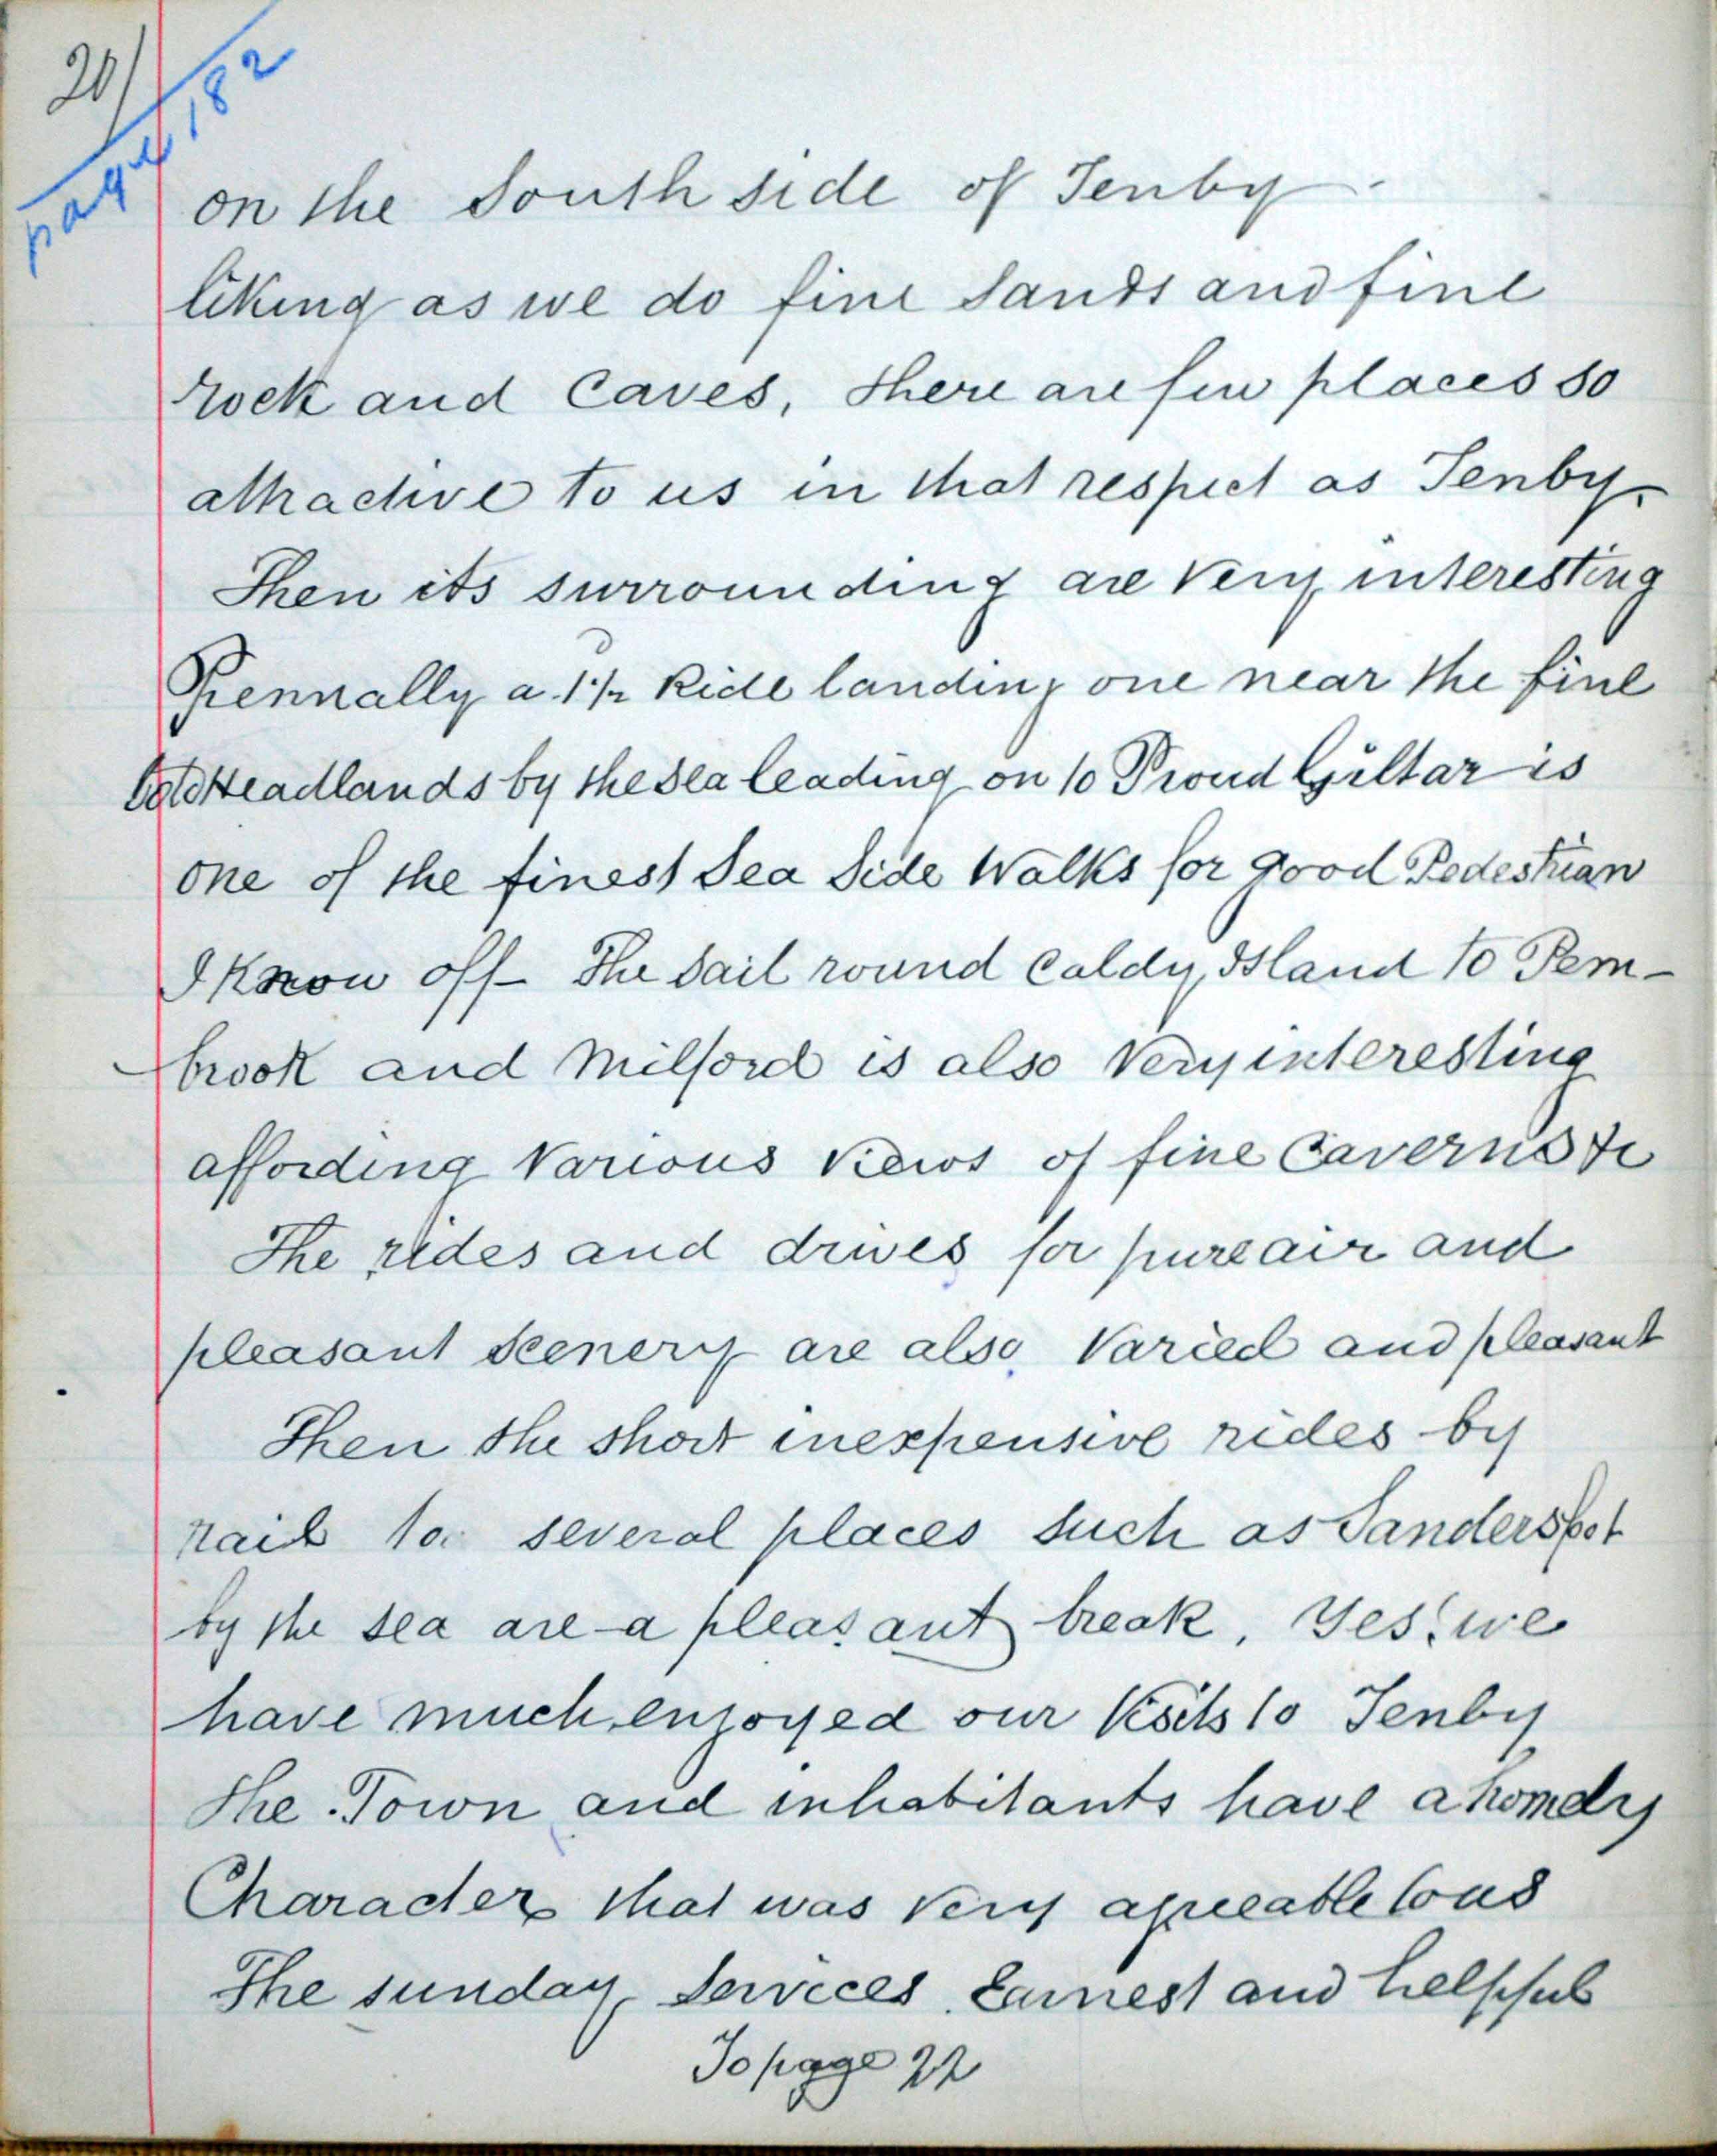 20/
page 182
on the South side of Tenby
liking as we do fine Sands and fine
rock and Caves, there are few places so
attractive to us in that respect as Tenby.
Then its surrounding are very interesting
Pennally a 1½ Ride landing one near the fine
bold Headlands by the sea leading on to Proud Giltar is
one of the finest Sea Side Walks for good Pedestrian
I know off - The Sail round Caldy Island to Pem-
brook and Milford is also very interesting
affording Various Views of fine Caverns &c
The rides and drives for pure air and
pleasant scenery are also Varied and pleasant
Then the short inexpensive rides by
rail to several places such as Sandersfot
by the sea are a pleasant break, Yes! we
have much enjoyed our Visits to Tenby
The Town and inhabitants have a homely
Character that was very agreeable to us
The sunday Services Earnest and helpful
To page 22